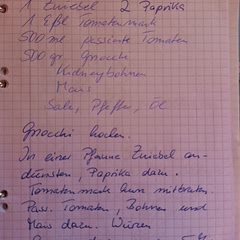 1 Zwiebel 2 Paprika
1 Eßl Tomatenmark
500 ml passierte Tomaten
500 gr. Gnocchi
Kidneybohnen
Mais
Salz, Pfeffer, Öl
Gnocchi kochen.
In einer Pfanne Zwiebel an-
dünsten, Paprika dazu.
Tomatenmark kurz mitbraten.
Pass. Tomaten, Bohnen und
Mais dazu. Würzen